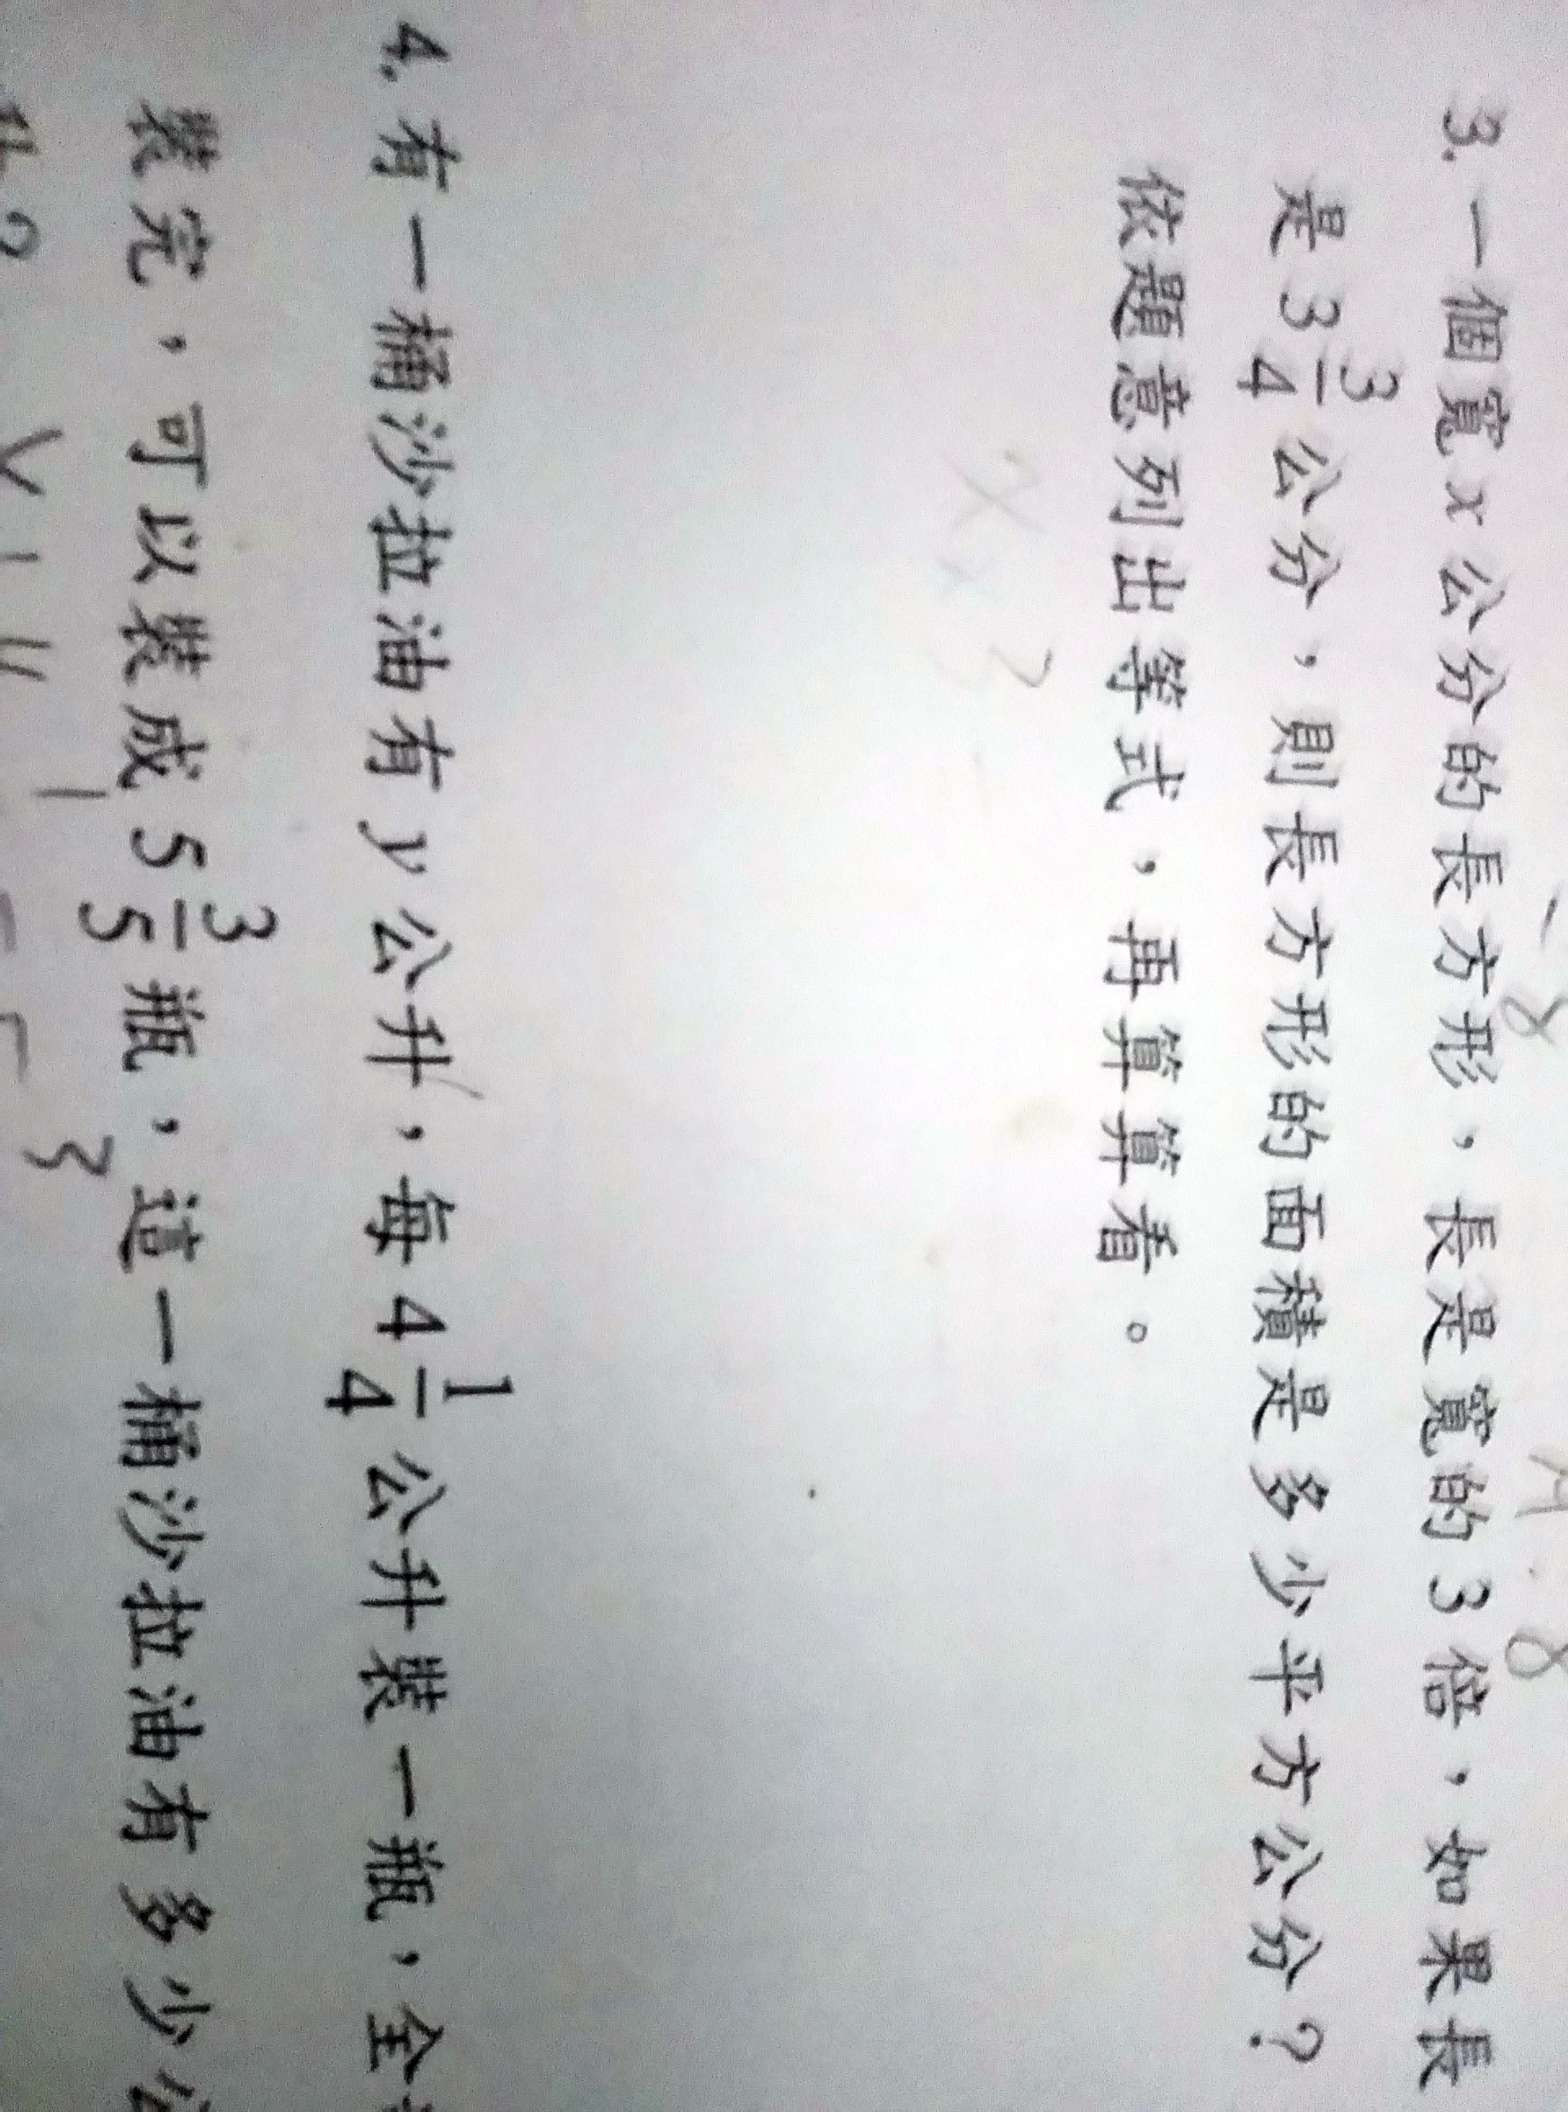 3. 一個寬 x 公分的長方形，長是寬的 3 倍，如果長
是 3 3/4 公分，則長方形的面積是多少平方公分？
依題意列出等式，再算算看。
x×3
4. 有一桶沙拉油有 y 公升，每 4 1/4 公升裝一瓶，全
裝完，可以裝成 5 3/5 瓶，這一桶沙拉油有多少